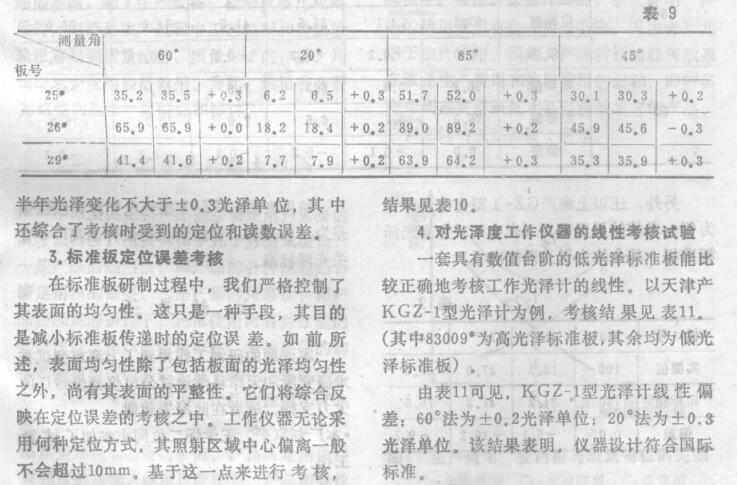 表 9
测量角 60° 20° 85° 45°
板号
25# 35.2 35.5 +0.3 6.2 6.5 +0.3 51.7 52.0 +0.3 30.1 30.3 +0.2
26# 65.9 65.9 +0.0 18.2 18.4 +0.2 89.0 89.2 +0.2 45.9 45.6 -0.3
29# 41.4 41.6 +0.2 7.7 7.9 +0.2 63.9 64.2 +0.3 35.3 35.9 +0.3
半年光泽变化不大于±0.3光泽单位,其中
还综合了考核时受到的定位和读数误差。
3.标准板定位误差考核
在标准板研制过程中,我们严格控制了
其表面的均匀性。这只是一种手段,其目的
是减小标准板传递时的定位误差。如前所
述,表面均匀性除了包括板面的光泽均匀性
之外,尚有其表面的平整性。它们将综合反
映在定位误差的考核之中。工作仪器无论采
用何种定位方式,其照射区域中心偏离一般
不会超过10mm。基于这一点来进行考核,
结果见表10。
4.对光泽度工作仪器的线性考核试验
一套具有数值台阶的低光泽标准板能比
较正确地考核工作光泽计的线性。以天津产
KGZ-1型光泽计为例,考核结果见表11。
(其中83009#为高光泽标准板,其余均为低光
泽标准板)。
由表11可见,KGZ-1型光泽计线性偏
差:60°法为±0.2光泽单位;20°法为±0.3
光泽单位。该结果表明,仪器设计符合国际
标准。